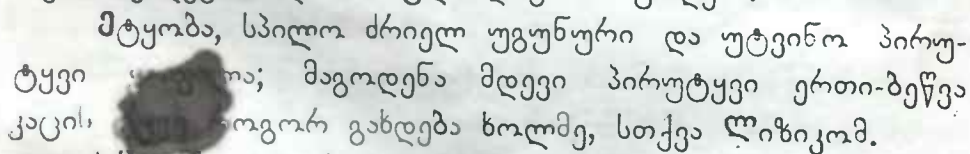 ეტყობა, სპილო ძრიელ უგუნური და უტვინო პირუ-
ტყვი; მაგოდენა მდევი პირუტყვი ერთი-ბეწვა
კაცის როგორ გახდება ხოლმე, სთქვა ლიზიკომ.